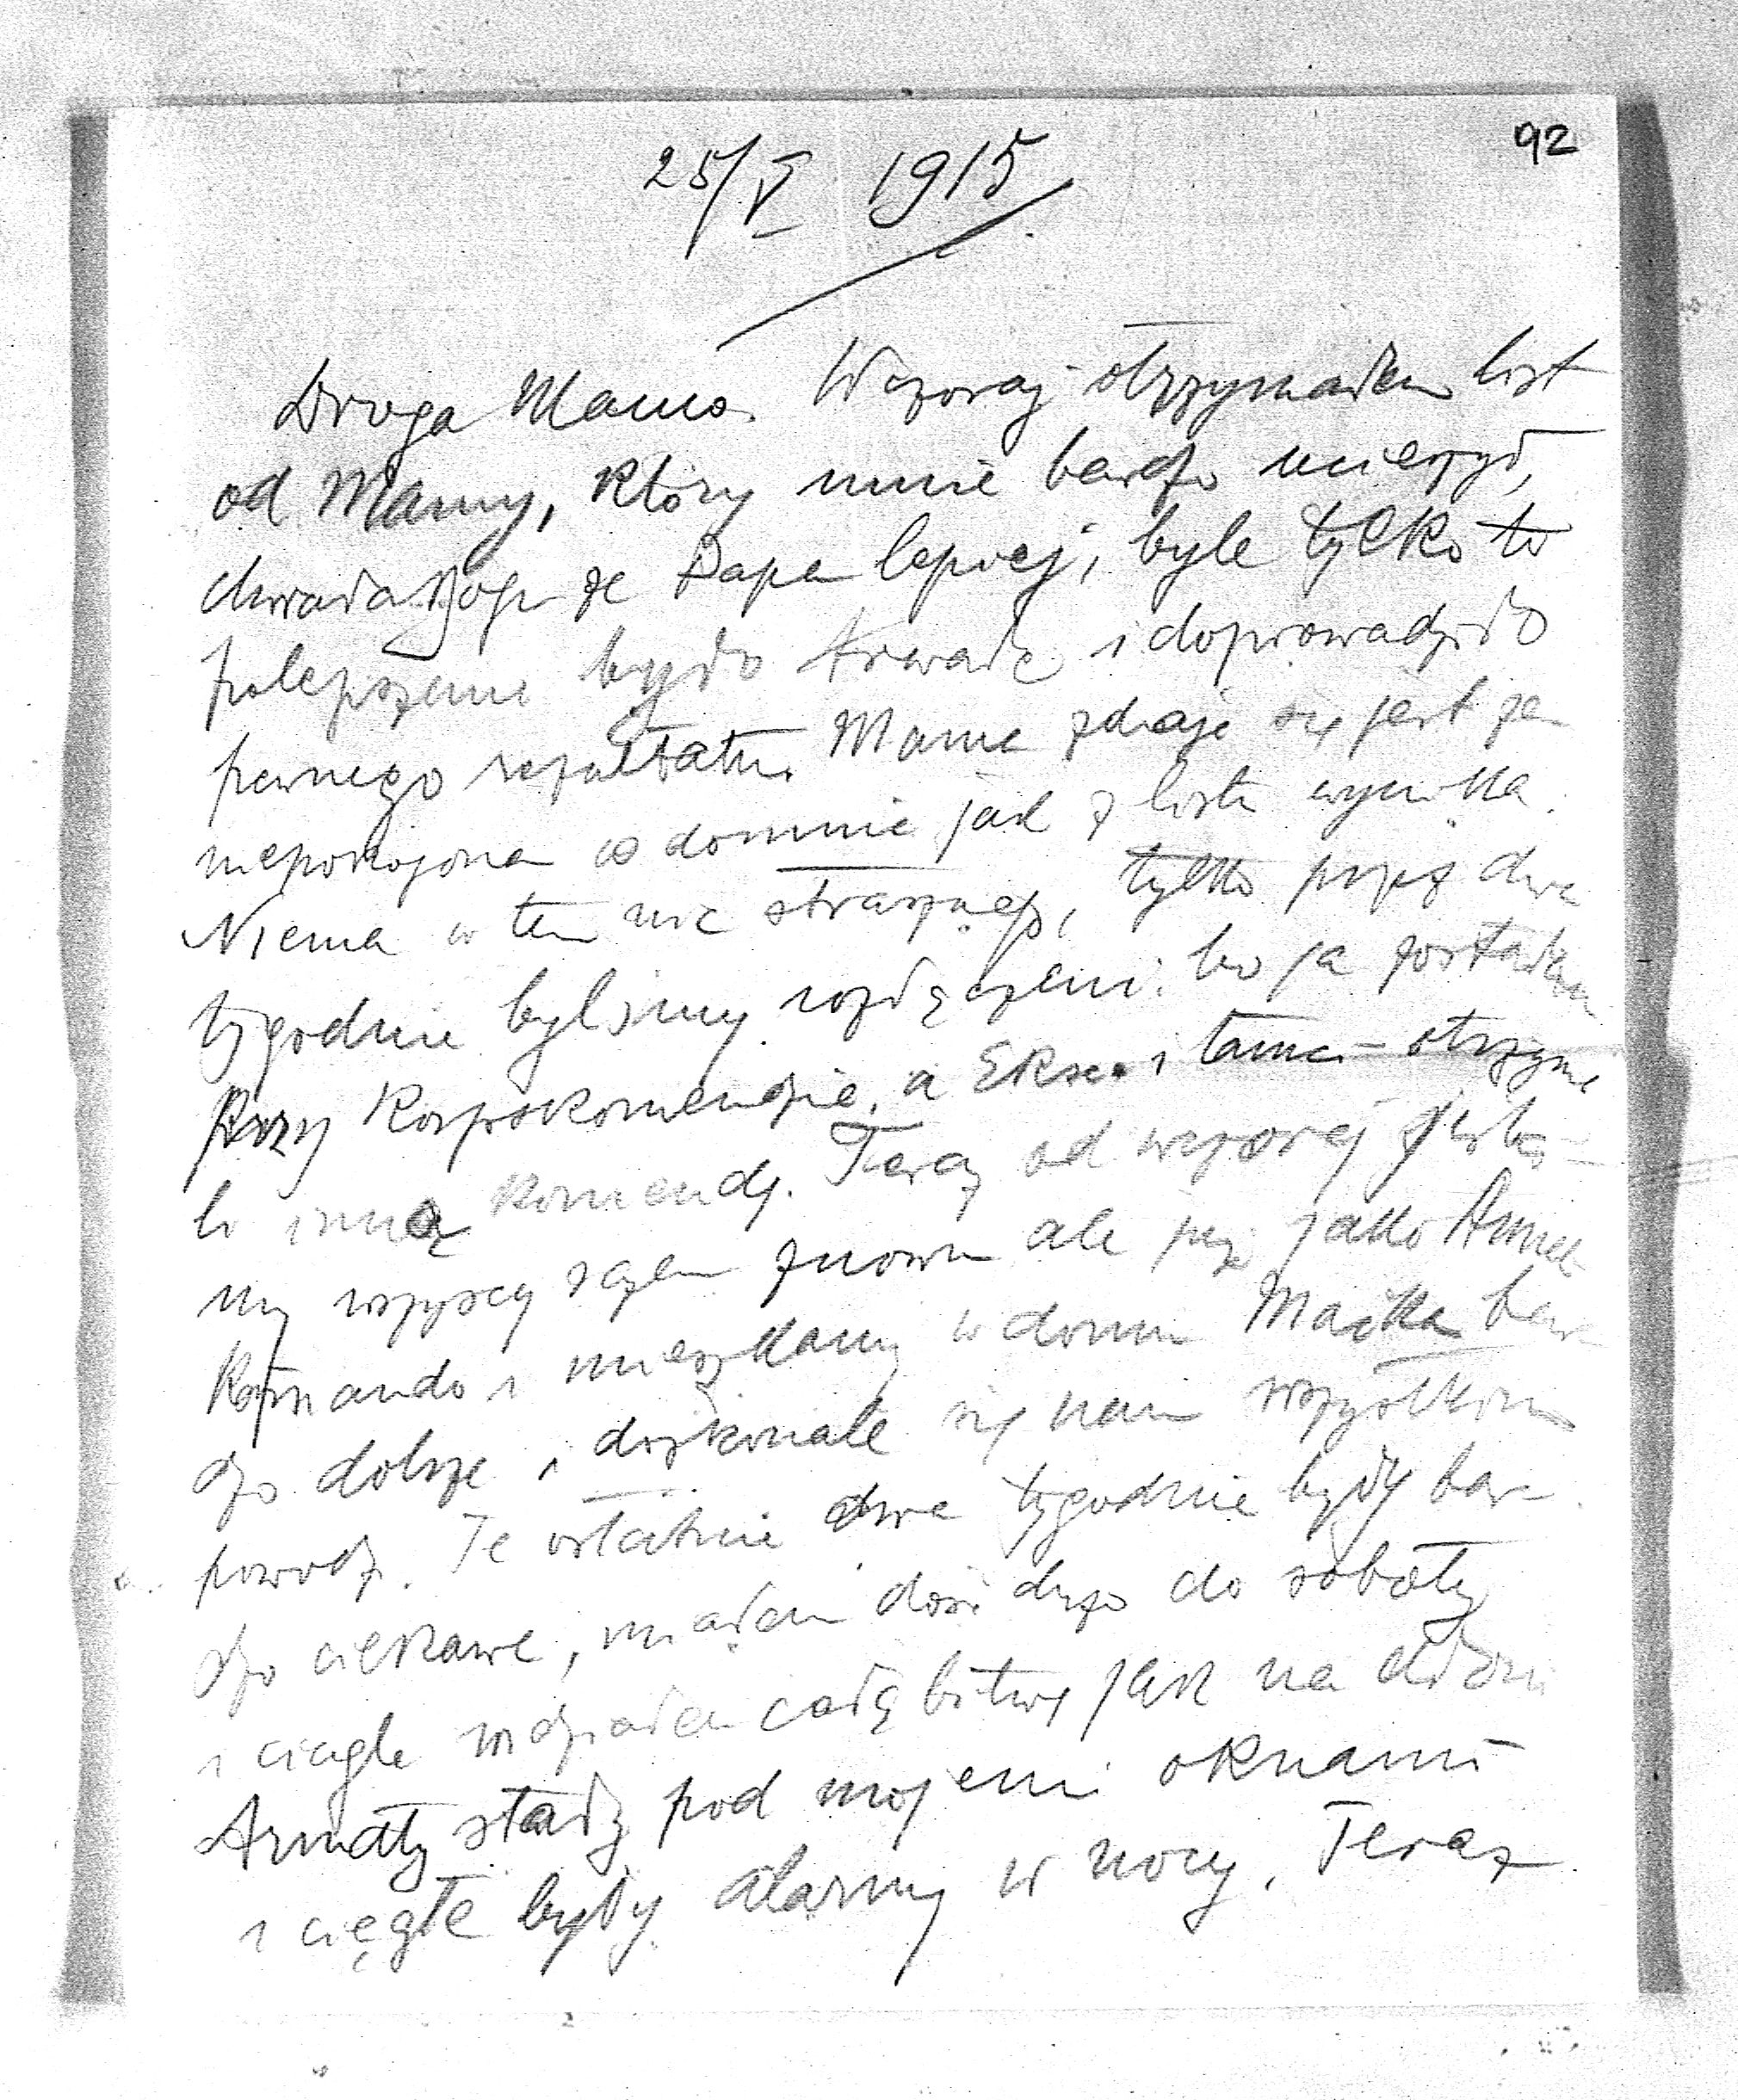 92
25/V 1915
Droga Mamo. Wczoraj otrzymałem list
od Mamy, który mnie bardzo ucieszył,
chwała Bogu że Papa lepiej, byle tylko to
polepszenie było trwałe i doprowadziło
pewnego rezultatu. Mama zdaje się jest za
niepokojona o domnie jak z listu wynika.
Niema w tem nic strasznego, tylko przez dwa
tygodnie byliśmy rozłączeni. bo ja zostałem
przy Korpskomendzie, a Eksc. i tamci otrzyma
li inną komendę. Teraz od wczoraj jesteś-
my wszyscy razem znowu ale już jako Armee
Komando i mieszkamy w domu Maćka bar
dzo dobrze i doskonale się nam wszystkim
powodzi. Te ostatnie dwa tygodnie były bar
dzo ciekawe, miałem dość dużo do roboty
i ciągle widziałem całą bitwę jak na dłoni
Armaty stały pod mojemi oknami
i ciągle były alarmy w nocy. Teraz